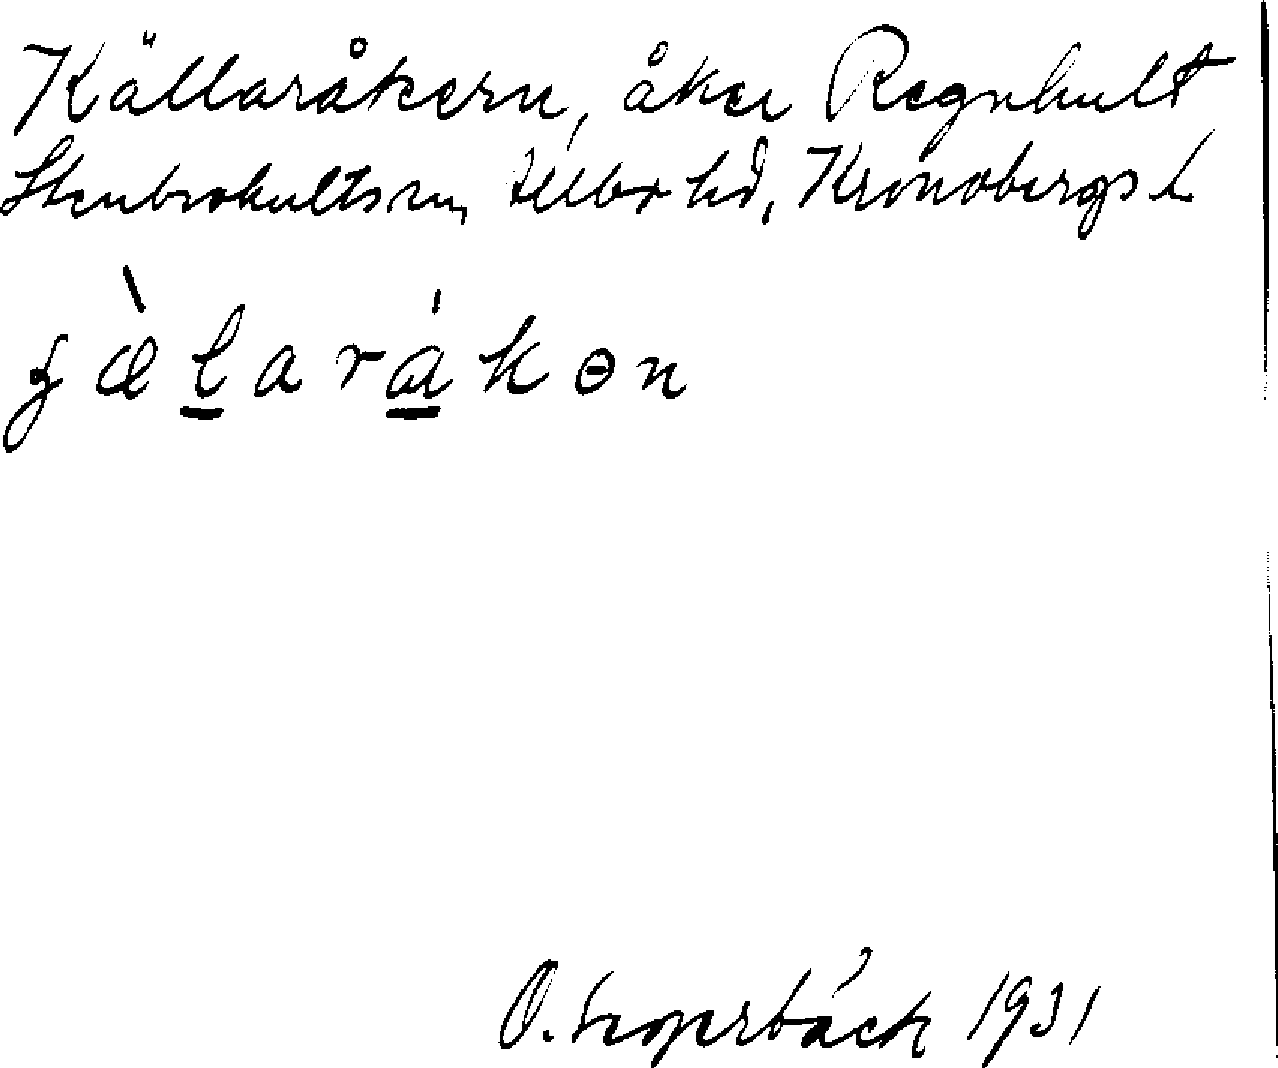 Källaråkern, åker Regnhult
Stenbrohults sn, Allbo hd, Kronobergs l
ɟæ̀l̲arǻ̲kɵn
O. 1931